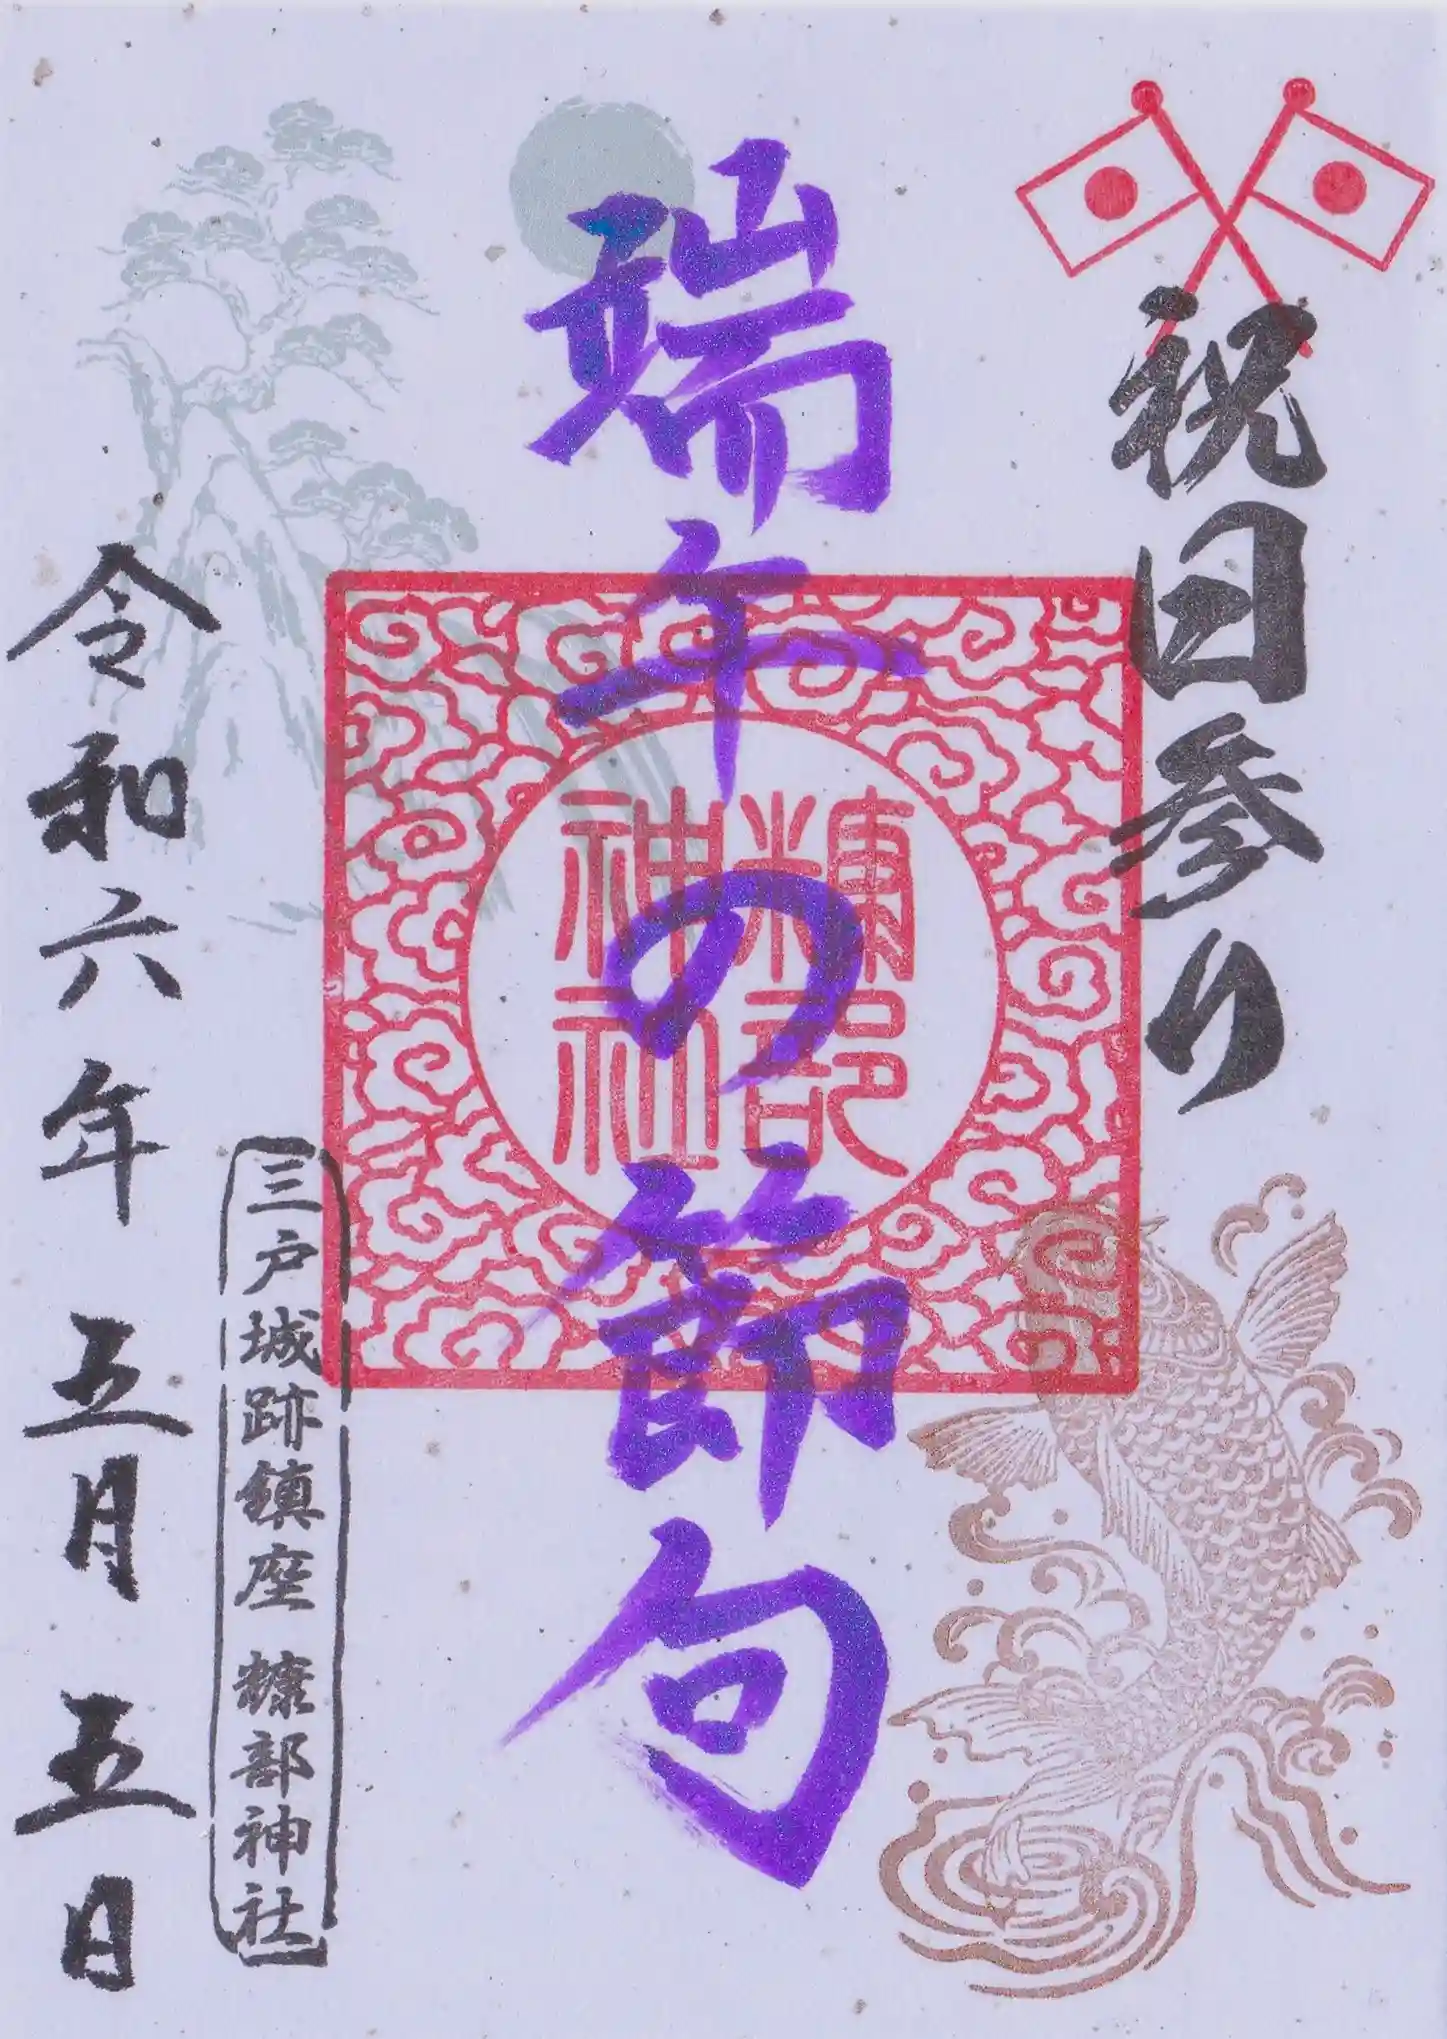 祝日参り
端午の節句
糠部
神社
三戸城跡鎮座 糠部神社
令和六年 五月五日